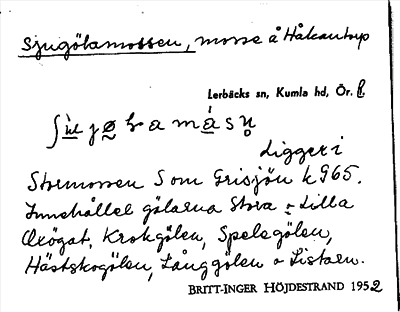 Sjugölamossen, mosse å Håkantorp
Lerbäcks sn, Kumla hd, Ör. l.
Ligger i
Stormossen S om Grisjön k 965.
Innehåller gölarna Stora - Lilla
Oxögat, Krokgölen, Spelegölen,
Hästskogölen, Långgölen o Listaen.
BRITT-INGER HÖJDESTRAND 1952